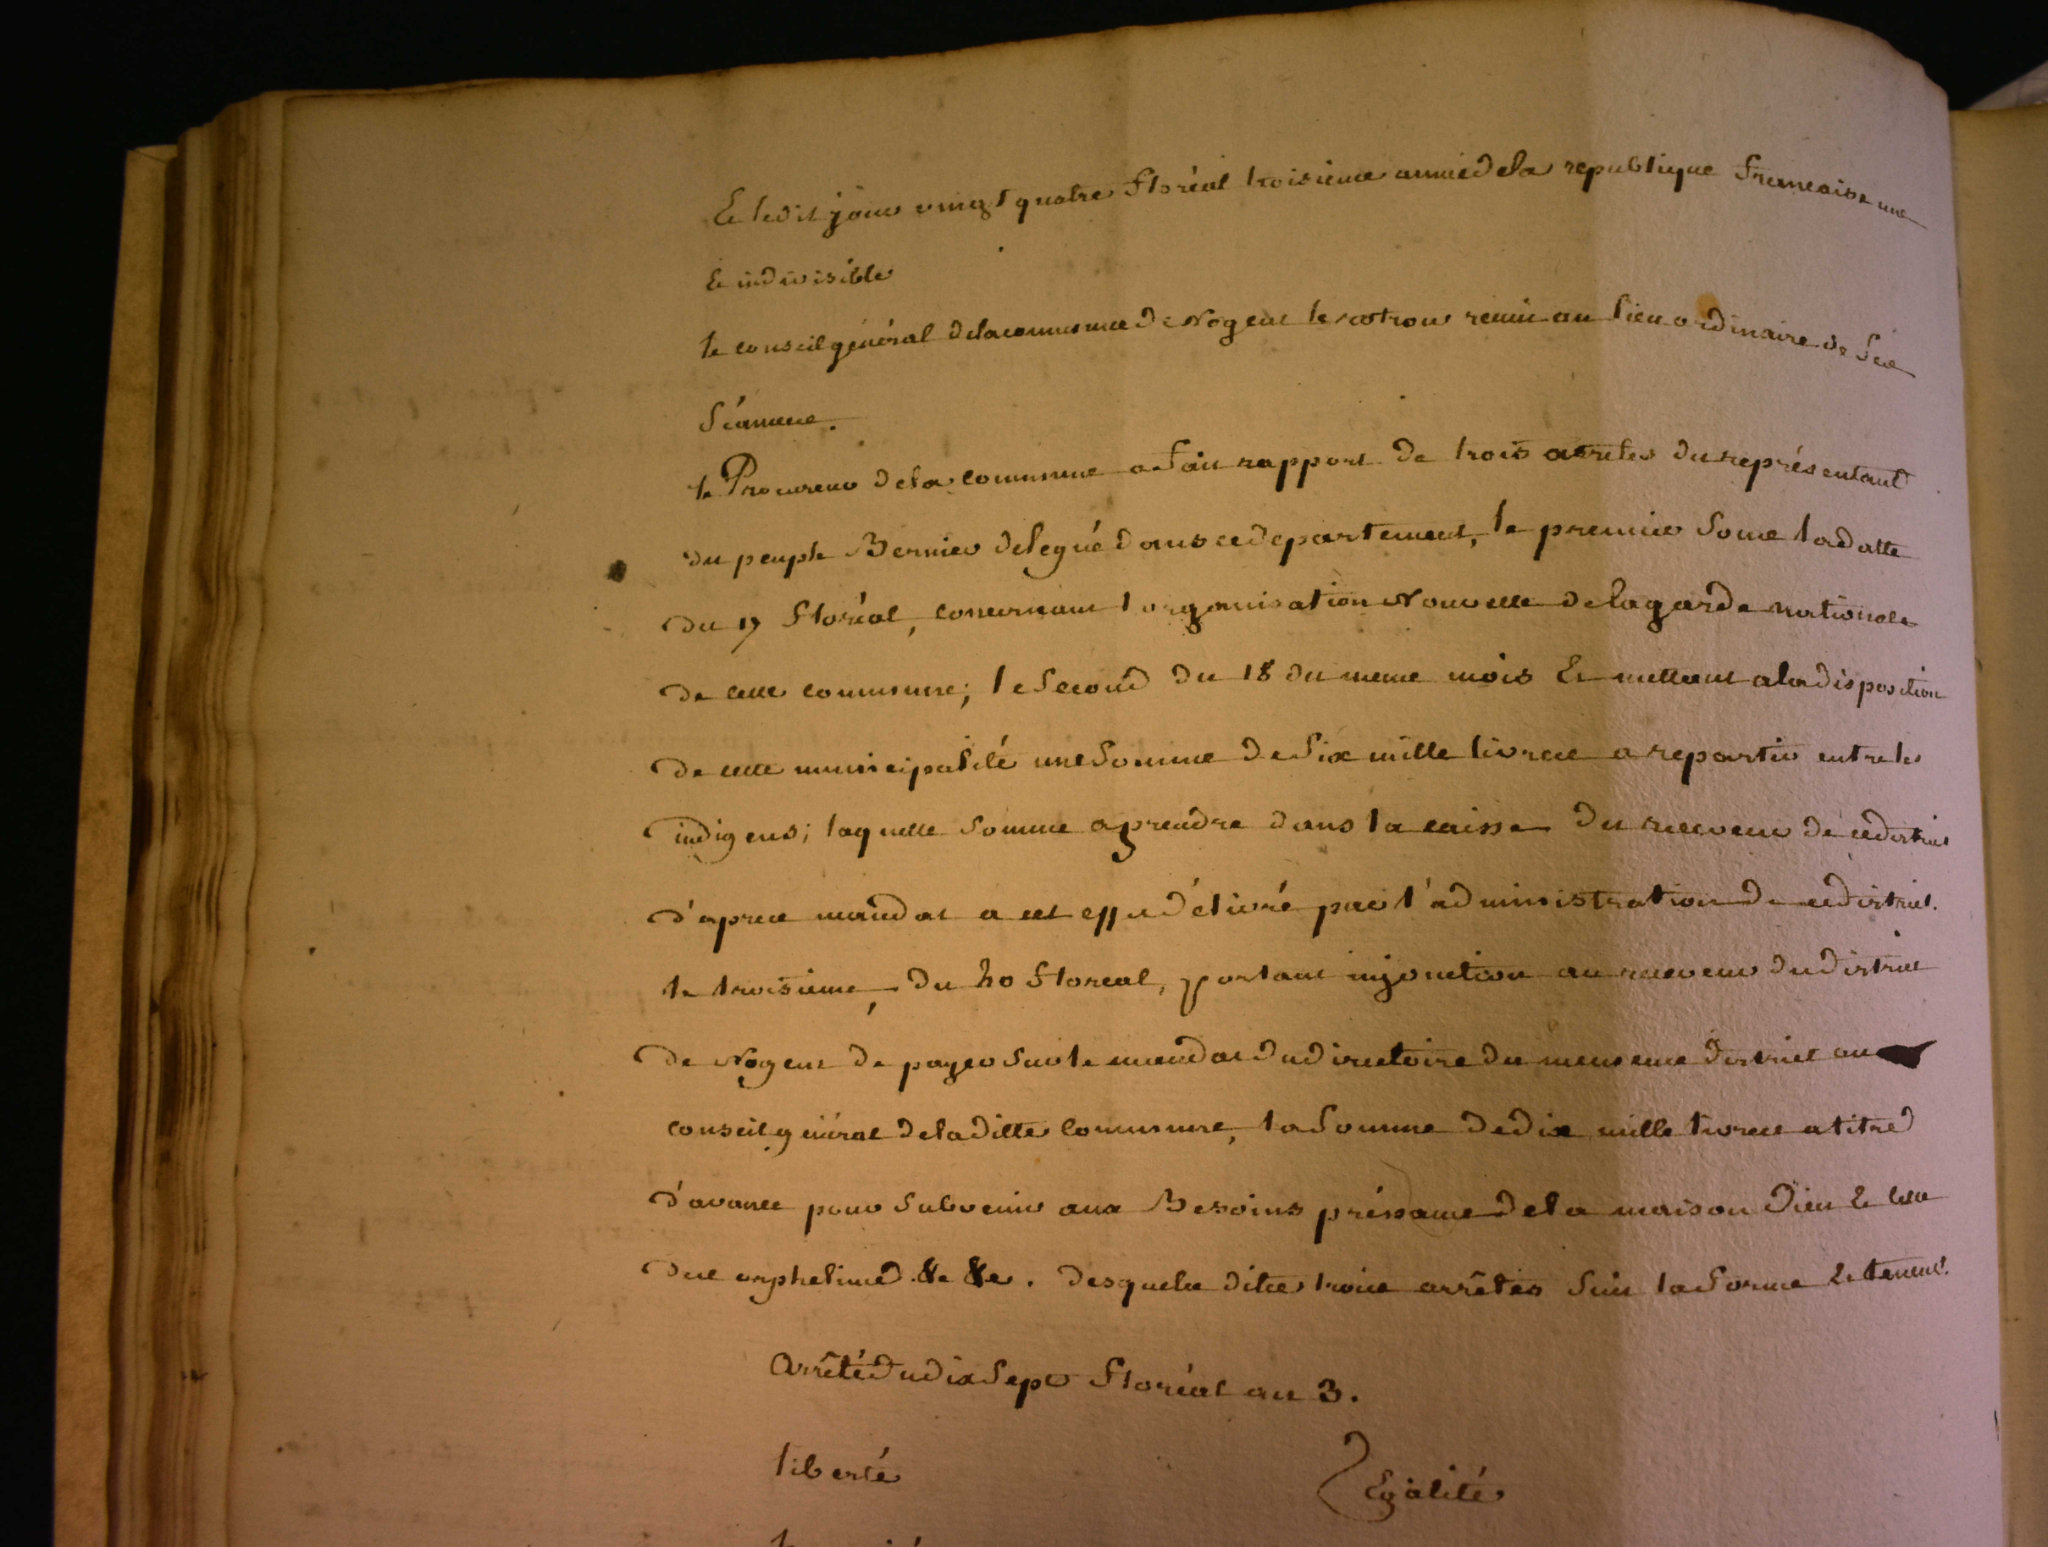 Et ledit jour vingt quatre floréal troisieme année de la republique francaise une
Et indivisible
le conseil général de la commune de Nogent le rotrou reuni au lieu ordinaire de Ses
Séances.
le Procureur de la commune a fait rapport de trois arretés du représentant
du peuple Bernier delegué dans ce departement, le premier Sous la datte
du 17 floréal, concernant l organisation Nouvelle de la garde nationale
de cette commune; le Second du 18 du meme mois Et mettant a la disposition
de cette municipalité une Somme de Six mille livres a repartir entre les
indigens; laquelle Somme a prendre dans la caisse du receveur de ce district
d'apres mandat a cet effet délivré par l'administration de ce district.
le troisieme, du 20 floreal, portant injonction au receveur du district
de Nogent de payer Sur le mandat du directoire du meme district au
conseil général de la ditte Commune, la Somme de dix mille livres a titre
d'avance pour Subvenir aux Besoins préssants de la maison Dieu Et
des orphelines &c &c. desquels dits trois arrêtés Suit la forme Et teneur.
Arrêté du dix Sept floréal an 3.
liberté Egalité